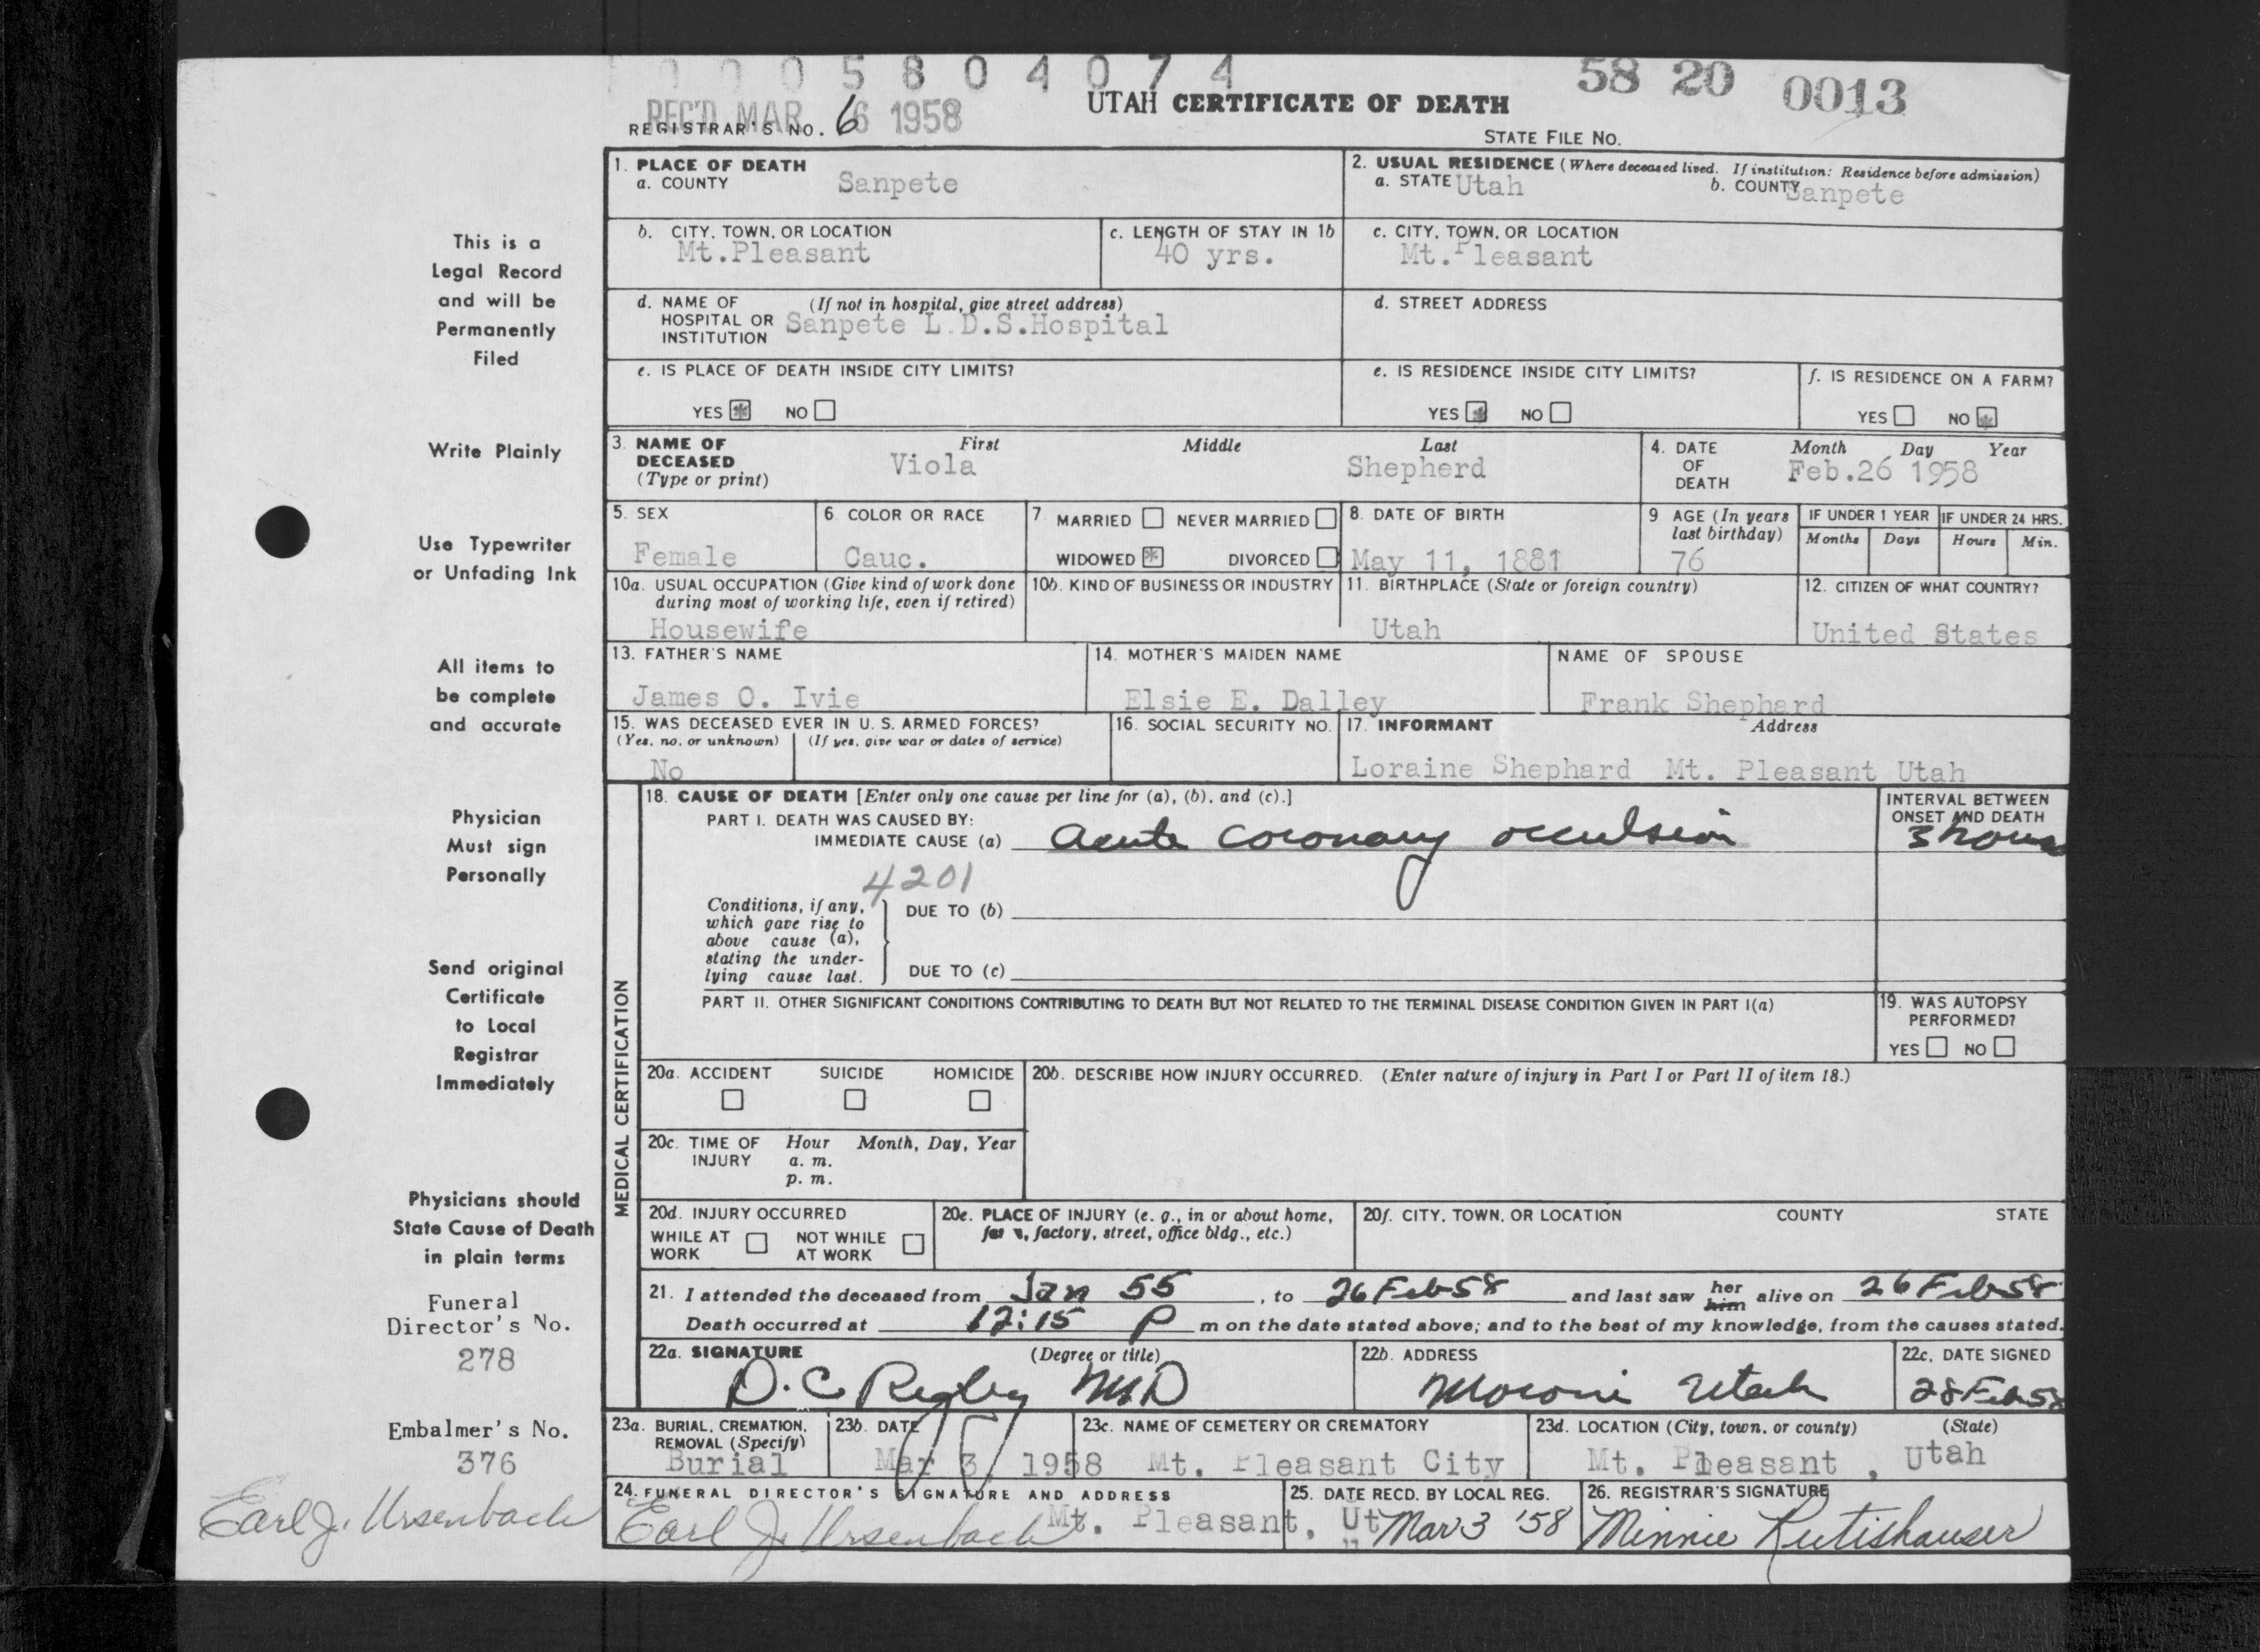 0 0 0 5 8 0 4 0 7 4
58 20 0013
REC'D MAR 6 1958
UTAH CERTIFICATE OF DEATH
REGISTRAR'S NO. 6
STATE FILE NO.
1. PLACE OF DEATH
a. COUNTY Sanpete
2. USUAL RESIDENCE (Where deceased lived. If institution: Residence before admission)
a. STATE Utah b. COUNTY Sanpete
b. CITY, TOWN, OR LOCATION
Mt.Pleasant
c. LENGTH OF STAY IN 1b
40 yrs.
c. CITY, TOWN, OR LOCATION
Mt.Pleasant
d. NAME OF HOSPITAL OR INSTITUTION (If not in hospital, give street address)
Sanpete L.D.S.Hospital
d. STREET ADDRESS
e. IS PLACE OF DEATH INSIDE CITY LIMITS?
YES NO
e. IS RESIDENCE INSIDE CITY LIMITS?
YES NO
f. IS RESIDENCE ON A FARM?
YES NO
3. NAME OF DECEASED (Type or print)
First Middle Last
Viola Shepherd
4. DATE OF DEATH
Month Day Year
Feb.26 1958
5. SEX
Female
6. COLOR OR RACE
Cauc.
7. MARRIED NEVER MARRIED
WIDOWED DIVORCED
8. DATE OF BIRTH
May 11, 1881
9 AGE (In years last birthday)
76
IF UNDER 1 YEAR
Months Days
IF UNDER 24 HRS.
Hours Min.
10a. USUAL OCCUPATION (Give kind of work done
during most of working life, even if retired)
Housewife
10b. KIND OF BUSINESS OR INDUSTRY
11. BIRTHPLACE (State or foreign country)
Utah
12. CITIZEN OF WHAT COUNTRY?
United States
13. FATHER'S NAME
James O. Ivie
14. MOTHER'S MAIDEN NAME
Elsie E. Dalley
NAME OF SPOUSE
Frank Shephard
15. WAS DECEASED EVER IN U. S. ARMED FORCES?
(Yes, no, or unknown) (If yes, give war or dates of service)
No
16. SOCIAL SECURITY NO.
17. INFORMANT Address
Loraine Shephard Mt. Pleasant Utah
MEDICAL CERTIFICATION
18. CAUSE OF DEATH [Enter only one cause per line for (a), (b), and (c).]
PART I. DEATH WAS CAUSED BY:
IMMEDIATE CAUSE (a) Acute coronary occulsion
INTERVAL BETWEEN
ONSET AND DEATH
3 hours
4201
Conditions, if any,
which gave rise to
above cause (a),
stating the under-
lying cause last.
DUE TO (b)
DUE TO (c)
PART II. OTHER SIGNIFICANT CONDITIONS CONTRIBUTING TO DEATH BUT NOT RELATED TO THE TERMINAL DISEASE CONDITION GIVEN IN PART I(a)
19. WAS AUTOPSY
PERFORMED?
YES NO
20a. ACCIDENT SUICIDE HOMICIDE
20b. DESCRIBE HOW INJURY OCCURRED. (Enter nature of injury in Part I or Part II of item 18.)
20c. TIME OF INJURY
Hour Month, Day, Year
a. m.
p. m.
20d. INJURY OCCURRED
WHILE AT WORK NOT WHILE AT WORK
20e. PLACE OF INJURY (e. g., in or about home,
factory, street, office bldg., etc.)
20f. CITY, TOWN, OR LOCATION COUNTY STATE
21. I attended the deceased from Jan 55, to 26 Feb 58 and last saw her him alive on 26 Feb 58
Death occurred at 12:15 P m on the date stated above; and to the best of my knowledge, from the causes stated.
22a. SIGNATURE (Degree or title)
D. C. Rigby MD
22b. ADDRESS
Moroni Utah
22c. DATE SIGNED
28 Feb 58
23a. BURIAL, CREMATION,
REMOVAL (Specify)
Burial
23b. DATE
Mar 3, 1958
23c. NAME OF CEMETERY OR CREMATORY
Mt. Pleasant City
23d. LOCATION (City, town, or county) (State)
Mt. Pleasant, Utah
24. FUNERAL DIRECTOR'S SIGNATURE AND ADDRESS
Earl J. Ursenbach Mt. Pleasant, Ut
25. DATE RECD. BY LOCAL REG.
Mar 3 '58
26. REGISTRAR'S SIGNATURE
Minnie Rutishauser
This is a
Legal Record
and will be
Permanently
Filed
Write Plainly
Use Typewriter
or Unfading Ink
All items to
be complete
and accurate
Physician
Must sign
Personally
Send original
Certificate
to Local
Registrar
Immediately
Physicians should
State Cause of Death
in plain terms
Funeral
Director's No.
278
Embalmer's No.
376
Earl J. Ursenbach